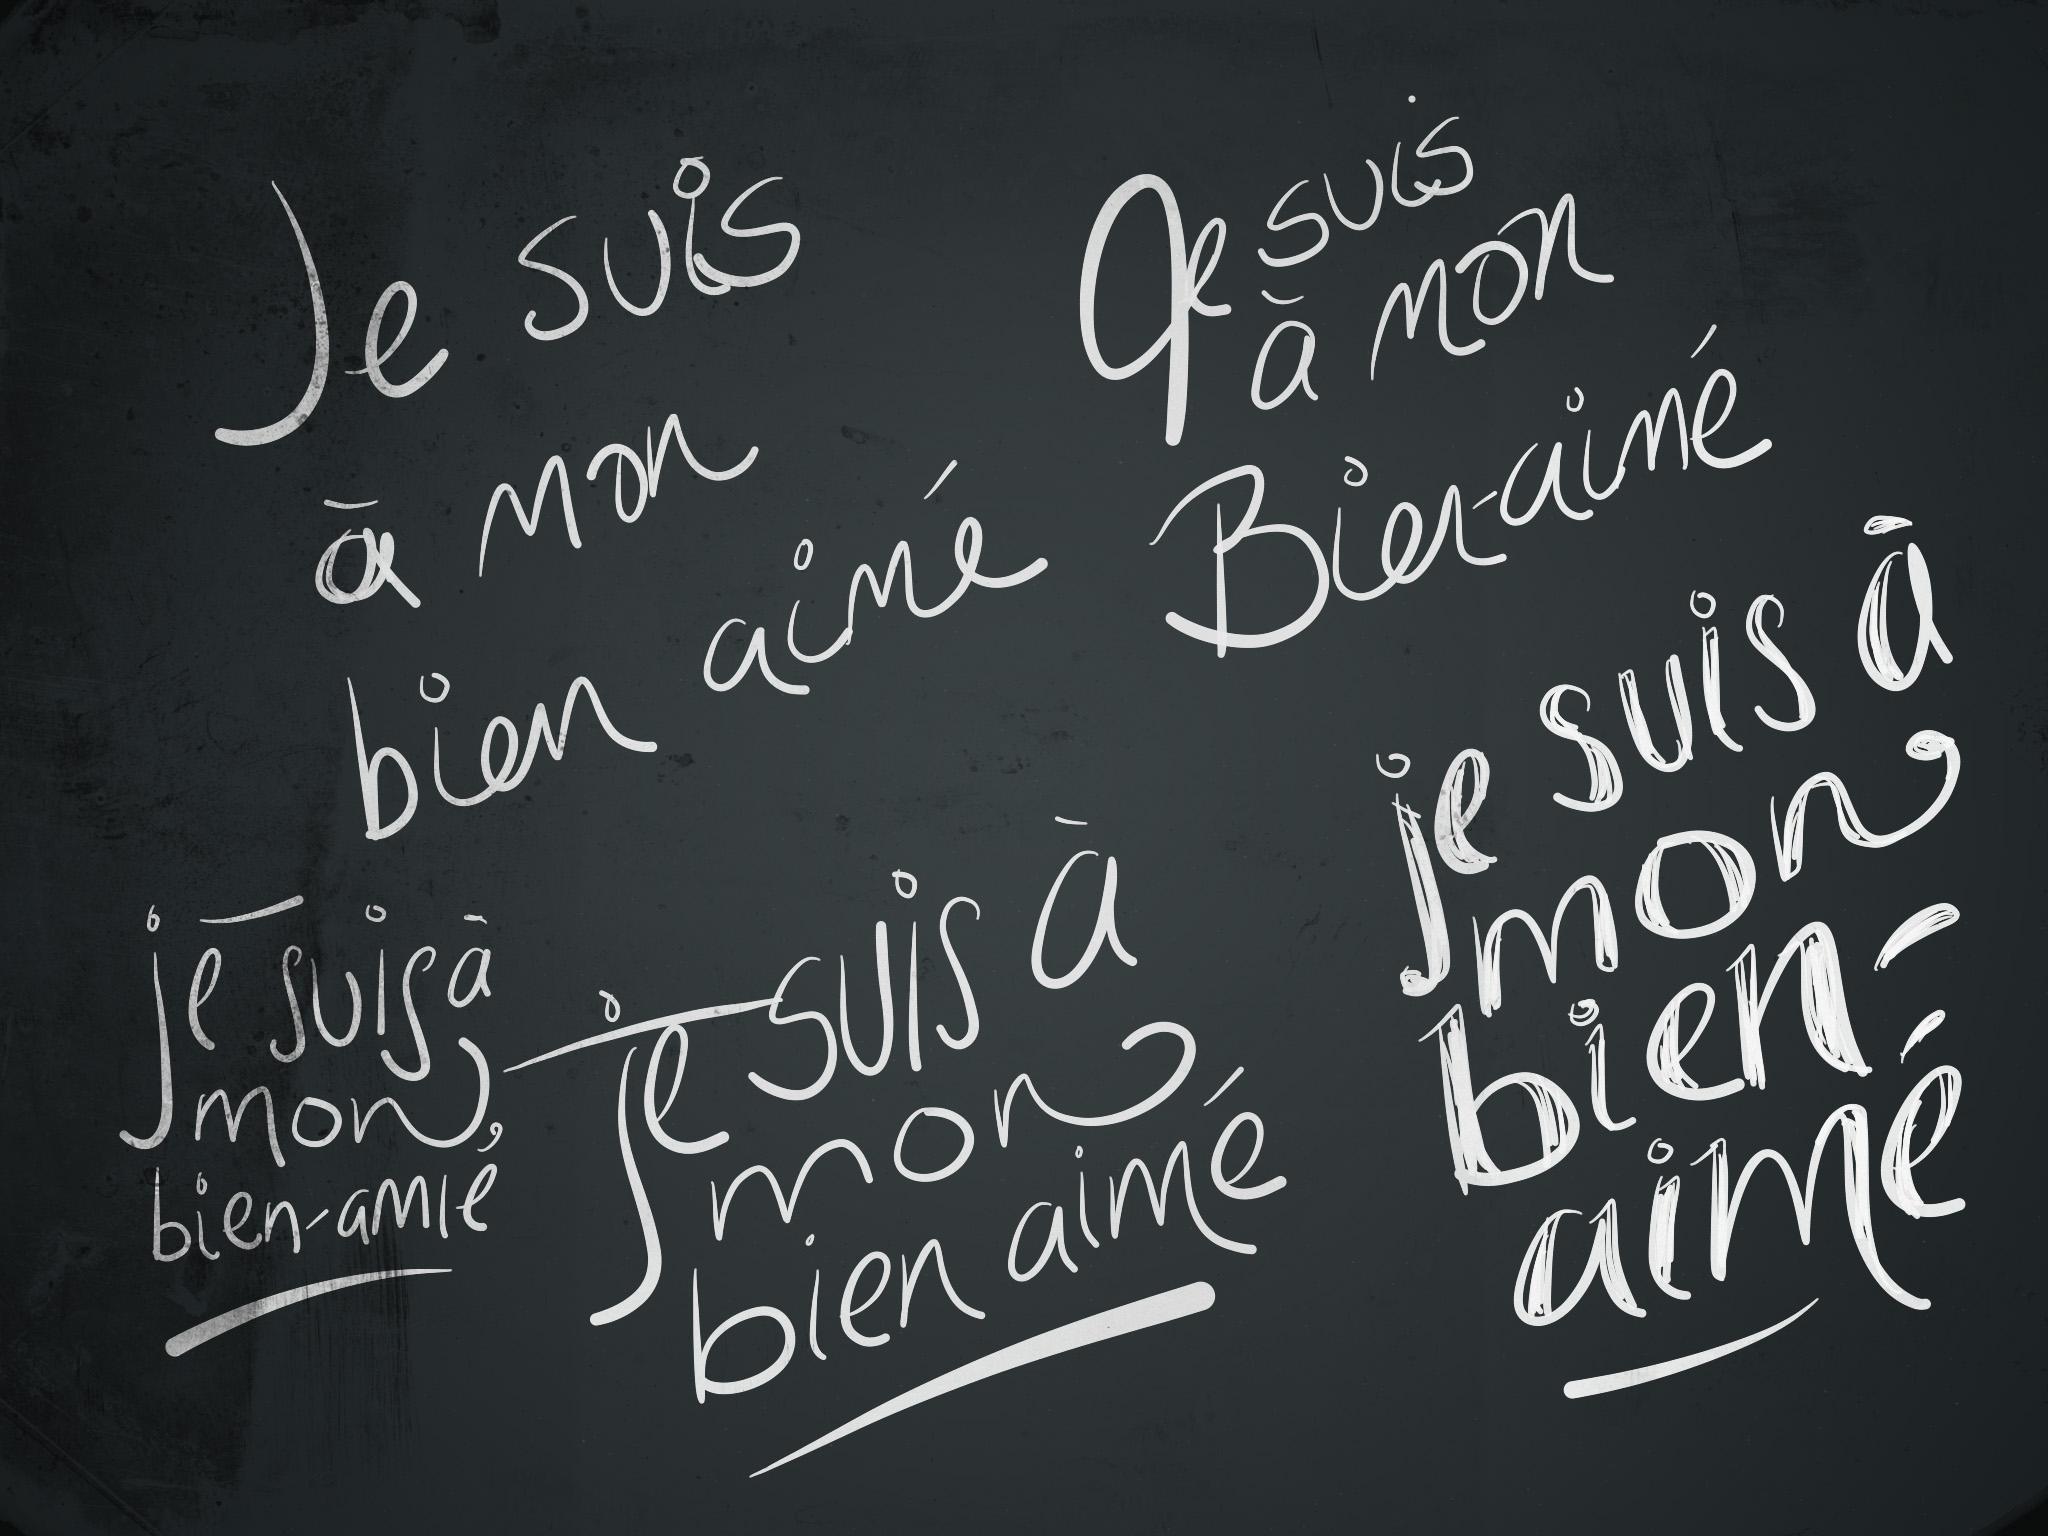 Je suis
à mon
bien aimé
Je suis
à mon
Bien-aimé
je suis à
mon
bien-amié
je suis à
mon
bien aimé
je suis à
mon
bien-
aimé